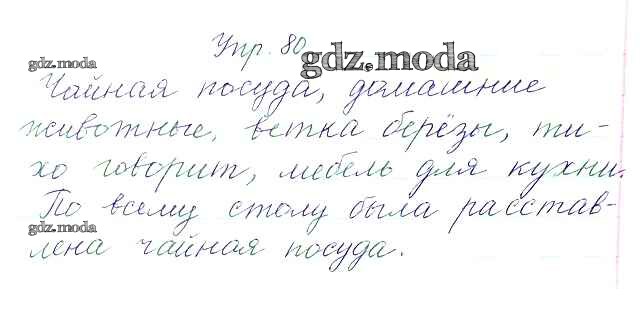 Упр. 80
gdz.moda
gdz.moda
Чайная посуда, домашние
животные, ветка берёзы, ти-
хо говорит, мебель для кухни.
По всему столу была расстав-
gdz.moda
лена чайная посуда.